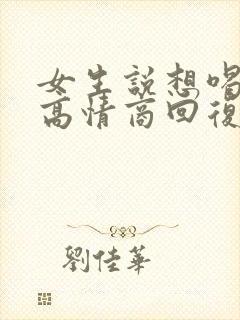 女生説想喝
高情商回復
劉佳華